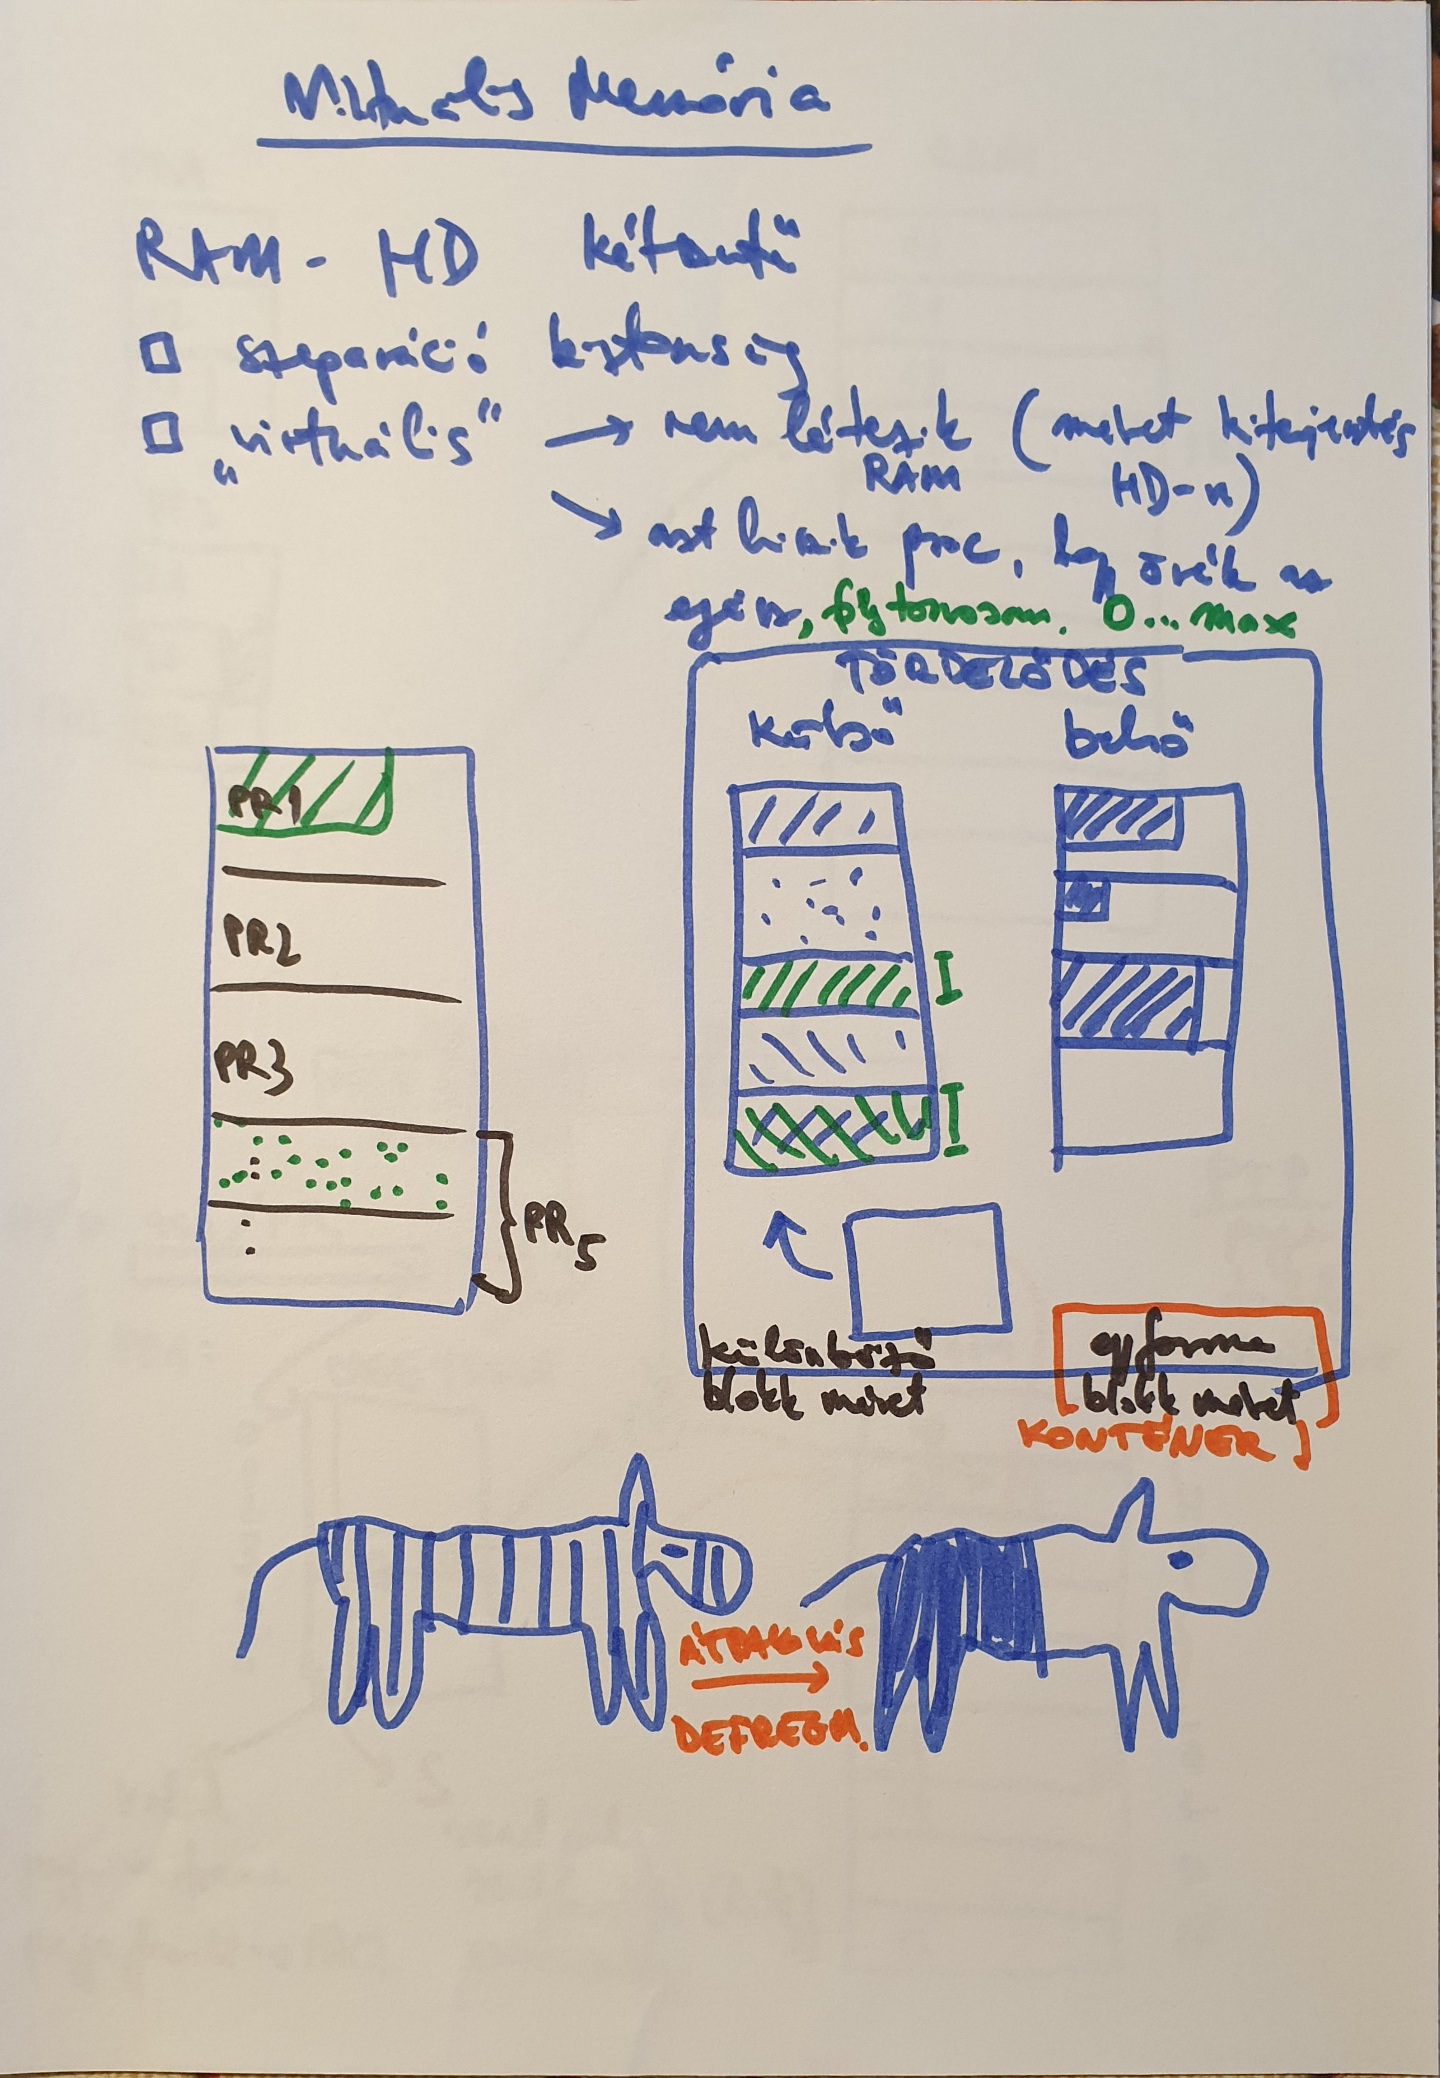 Virtuális Memória
RAM - HD kétszintű
szeparáció biztonság
"virtuális" → nem létezik (méret kiterjesztés
RAM HD-n)
→ azt hiszik proc, hogy övék az
egész, folytonosan. 0...max
TÖRDELŐDÉS
külső belső
PR1
PR2
PR3
PR5
különböző egyforma
blokk méret blokk méret
KONTÉNER
ÁTRAKOLÁS
DEFREGM.